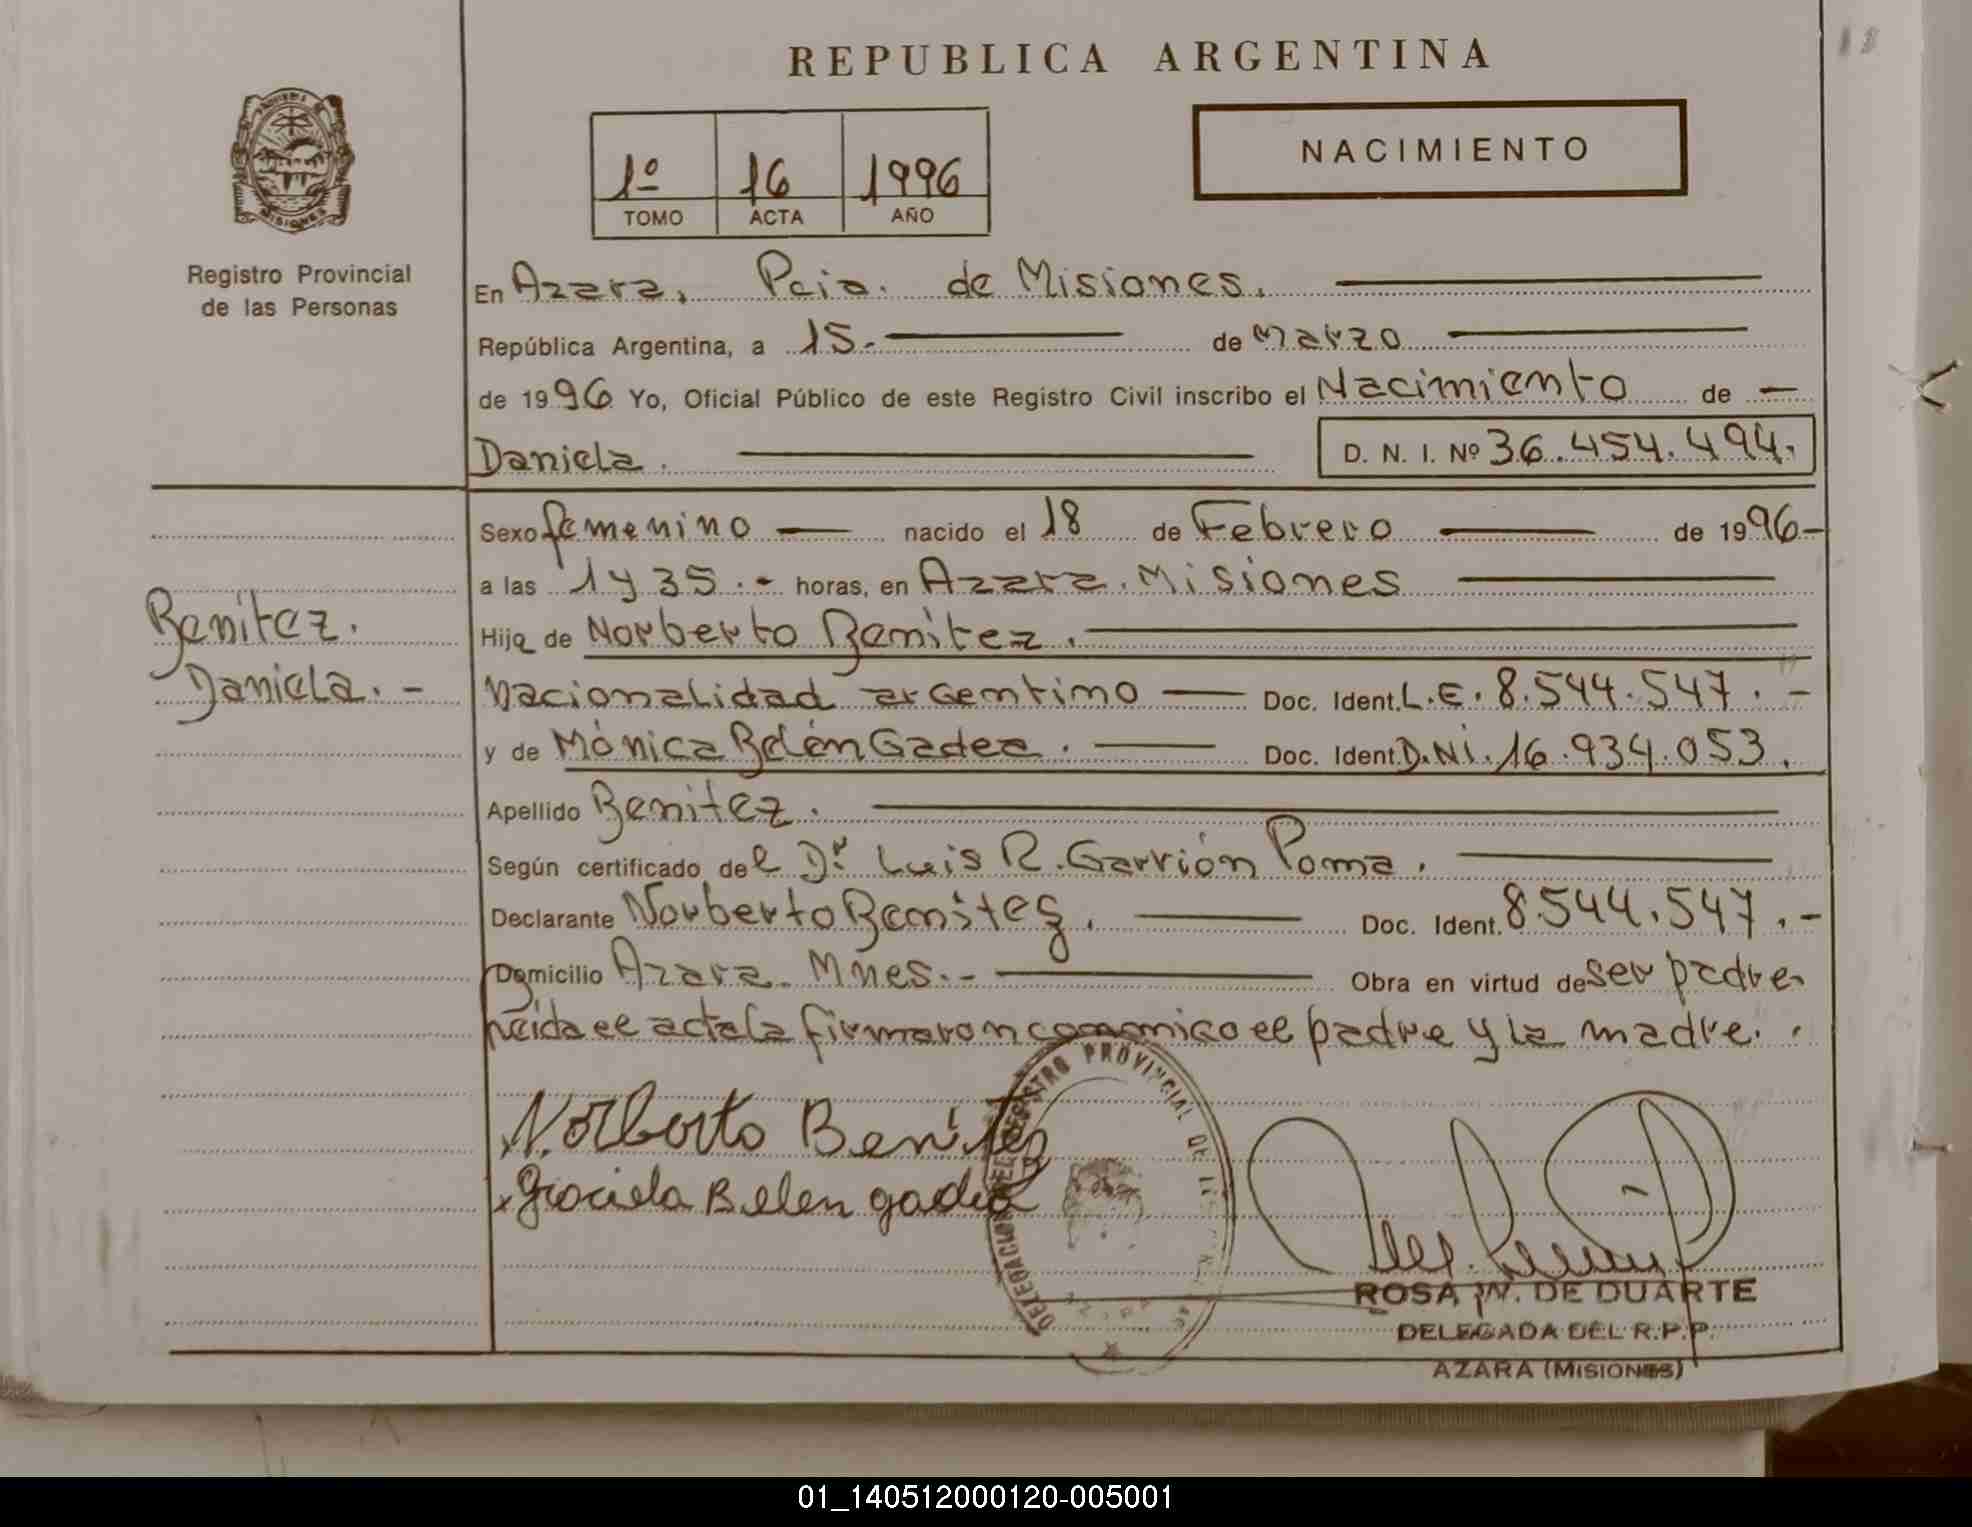 REPUBLICA ARGENTINA
1º 16 1996
TOMO ACTA AÑO
NACIMIENTO
MISIONES
Registro Provincial
de las Personas
En Azara, Pcia. de Misiones.
República Argentina, a 15.- de Marzo
de 1996 Yo, Oficial Público de este Registro Civil inscribo el Nacimiento de —
Daniela. D. N. I. Nº 36.454.494.
Sexo femenino — nacido el 18 de Febrero — de 1996-
a las 1 y 35.- horas, en Azara. Misiones
Hija de Norberto Benitez.
Nacionalidad argentino — Doc. Ident. L.E. 8.544.547.-
y de Mónica Belén Gadea. — Doc. Ident. D.Ni. 16.934.053.
Apellido Benitez.
Según certificado del Dr. Luis R. Garrión Poma.
Declarante Norberto Benitez. — Doc. Ident. 8.544.547.-
Domicilio Azara. Mnes.- Obra en virtud de ser padre.
el acta la firmaron conmigo el padre y la madre.
Benitez.
Daniela.-
Norberto Benitez
Graciela Belen gadea
DELEGACION DEL REGISTRO PROVINCIAL DE
ROSA W. DE DUARTE
DELEGADA DEL R.P.P.
AZARA (MISIONES)
01_140512000120-005001